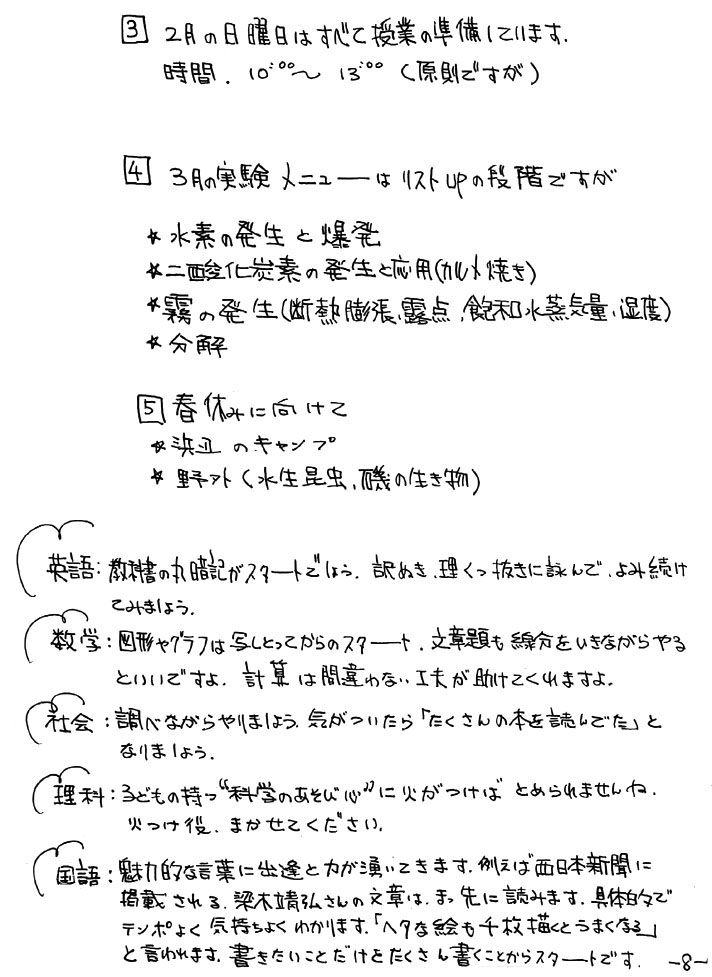 3 2月の日曜日はすべて授業の準備しています.
時間. 10:00〜 13:00 (原則ですが)
4 3月の実験メニューはリストupの段階ですが
★ 水素の発生と爆発
★ 二酸化炭素の発生と応用(カルメ焼き)
★ 霧の発生(断熱膨張、露点、飽和水蒸気量、湿度)
★ 分解
5 春休みに向けて
★ 浜辺のキャンプ
★ 野外(水生昆虫、磯の生き物)
英語: 教科書の丸暗記がスタートでしょう. 訳ぬき、理くつ抜きに詠んで、よみ続け
てみましょう.
数学: 図形やグラフは写しとってからのスタート. 文章題も線分をいきながらやる
といいですよ. 計算は間違わない工夫が助けてくれますよ.
社会: 調べながらやりましょう. 気がついたら「たくさんの本を読んでた」と
なりましょう.
理科: 子どもの持つ“科学のあそび心”に火がつけばとめられませんね.
火つけ後、まかせてください.
国語: 魅力的な言葉に出逢と力が湧いてきます. 例えば西日本新聞に
掲載される、梁木靖弘さんの文章は、まっ先に読みます. 具体的で
テンポよく気持ちよくわかります.「ヘタな絵も千枚描くとうまくなる」
と言われます. 書きたいことだけをたくさん書くことからスタートです.
-8-